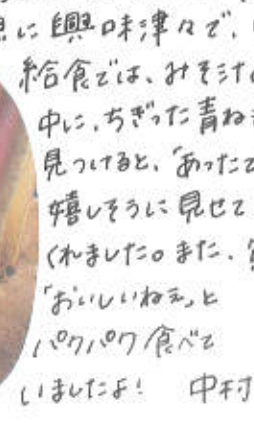 に興味津々で、
給食では、みそ汁の
中に、ちぎった青ねぎを
見つけると、「あったで
嬉しそうに見せて
くれました。また、
「おいしいねぇ」と
パクパク食べて
いましたよ！ 中村